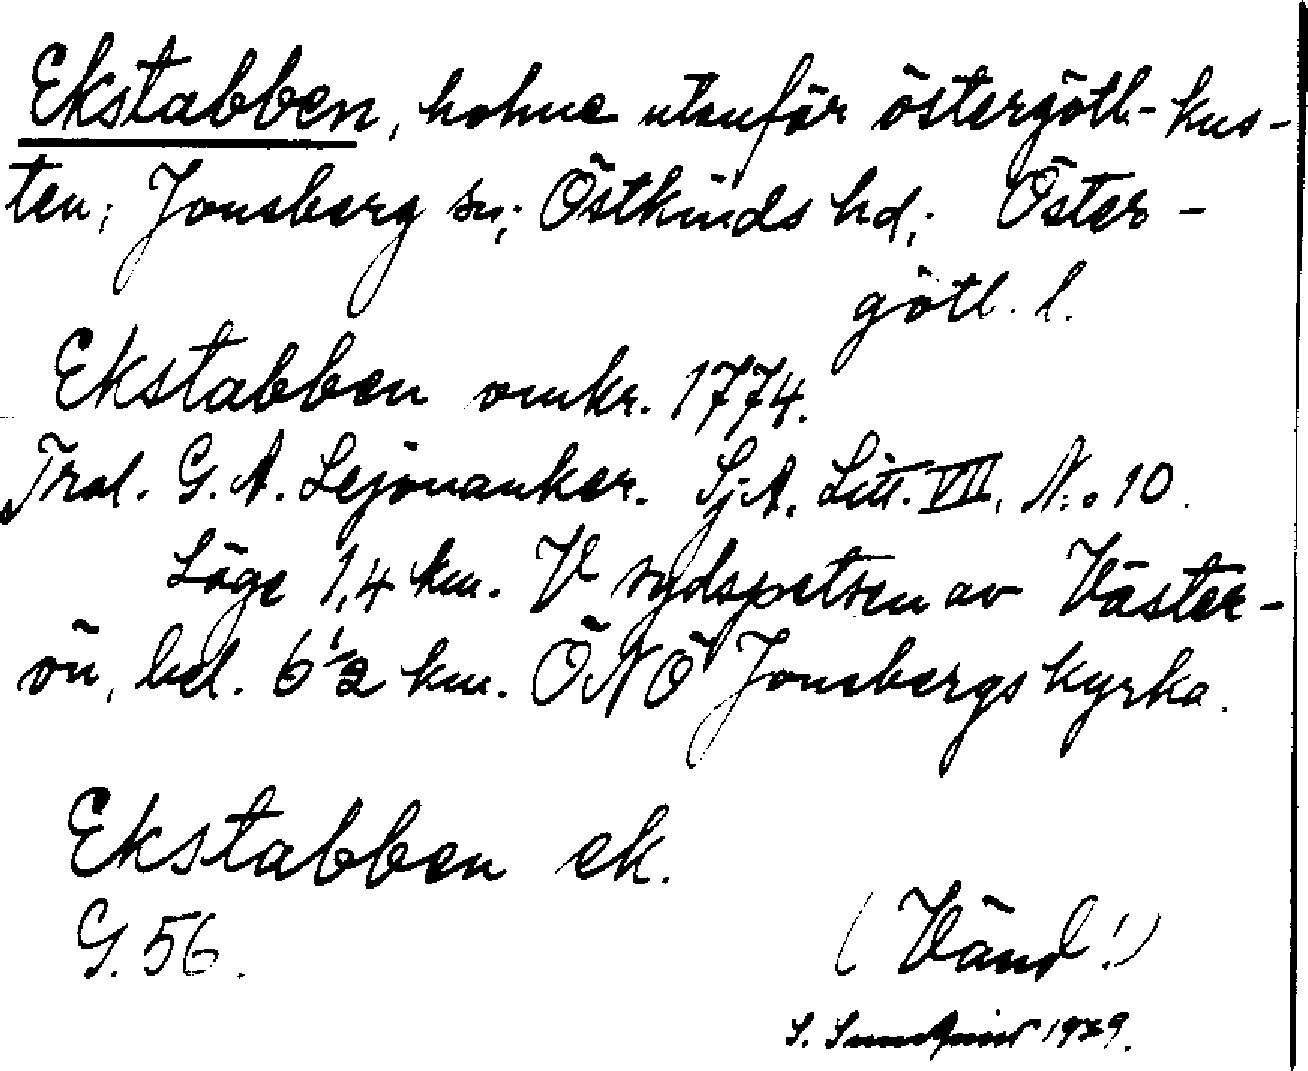 Ekstabben, holme utanför östergötl-kus-
ten; Jonsberg sn; Östkinds hd; Öster-
götl. l.
Ekstabben omkr. 1774.
Trol. G. A. Lejonanker. Sj.A. Litt. VII. N:o 10.
Läge 1,4 km. V sydspetsen av Väster-
ön, bel. 6 1/2 km. ÖNÖ Jonsbergs kyrka.
Ekstabben ek.
G. 56.
(Vänd!)
S. Sundqvist 1929.